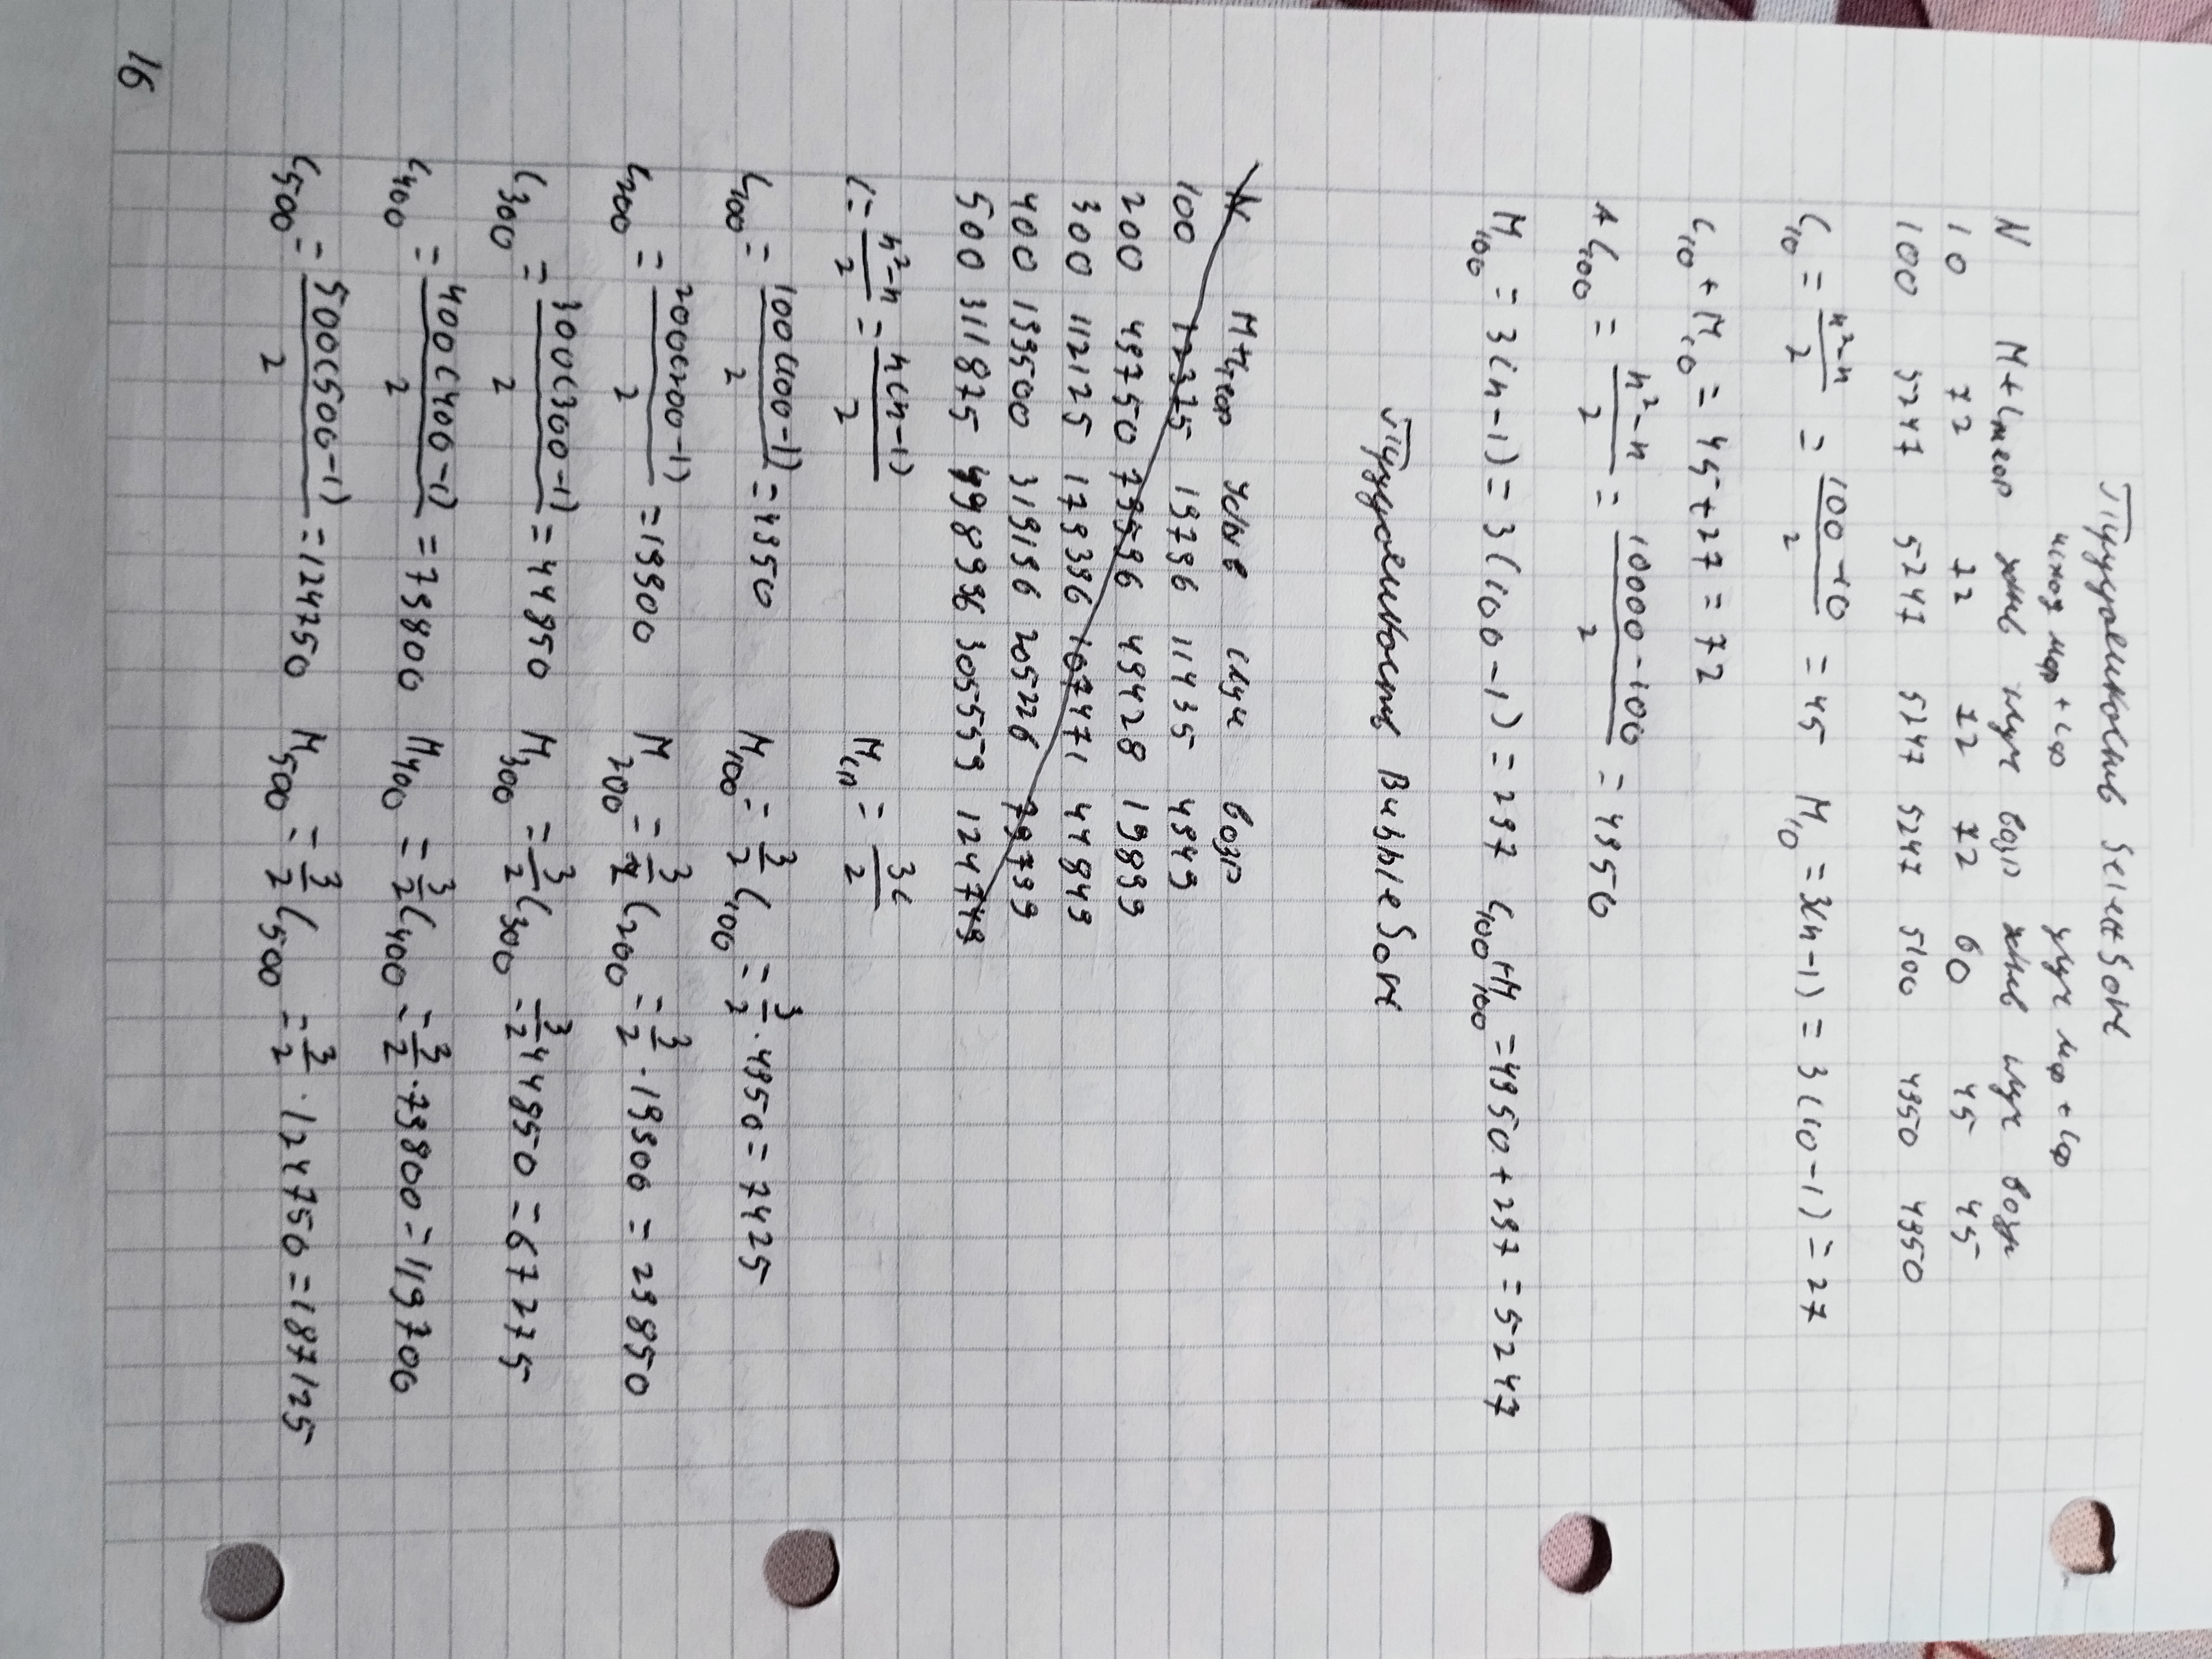 Трудоёмкость SelectSort
исход Мф + Сф улуч Мф + Сф
N M+Cтеор убыв случ возр убыв случ возр
10 72 72 72 72 60 45 45
100 5247 5247 5247 5247 5100 4950 4950
C10 = (n²-n)/2 = (100-10)/2 = 45 M10 = 3(n-1) = 3(10-1) = 27
C10 + M10 = 45+27 = 72
C100 = (n²-n)/2 = (10000-100)/2 = 4950
M100 = 3(n-1) = 3(100-1) = 297 C100+M100 = 4950+297 = 5247
Трудоёмкость BubbleSort
N M+Cтеор убыв случ возр
100 12375 19796 11435 4949
200 49750 79596 49428 19899
300 112125 179396 107471 44849
400 199500 319196 205226 79799
500 311875 498996 305559 124749
C = (n²-n)/2 = n(n-1)/2 Mср = 3C/2
C100 = 100(100-1)/2 = 4950 M100 = 3/2 C100 = 3/2 · 4950 = 7425
C200 = 200(200-1)/2 = 19900 M200 = 3/2 C200 = 3/2 · 19900 = 29850
C300 = 300(300-1)/2 = 44850 M300 = 3/2 C300 = 3/2 44850 = 67275
C400 = 400(400-1)/2 = 79800 M400 = 3/2 C400 = 3/2 · 79800 = 119700
C500 = 500(500-1)/2 = 124750 M500 = 3/2 C500 = 3/2 · 124750 = 187125
16